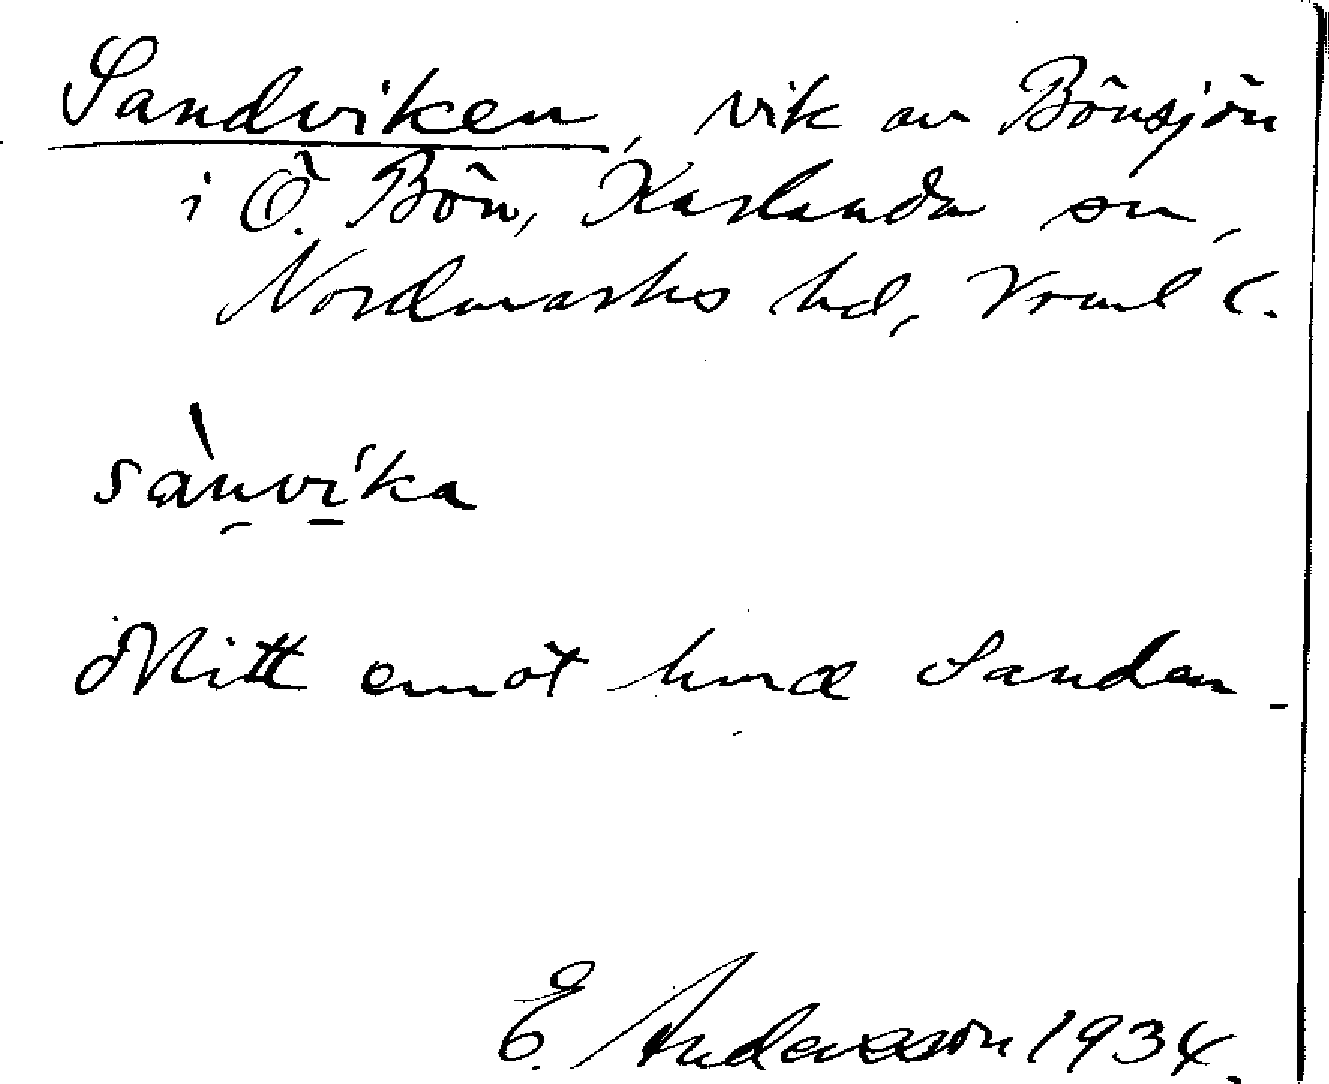 Sandviken, vik av Bönsjön
i Ö. Bön, Karlanda sn,
Nordmarks hd, Vrml l.
sànvi̱ka
Mitt emot hmd Sanden.
E. Andersson 1934.